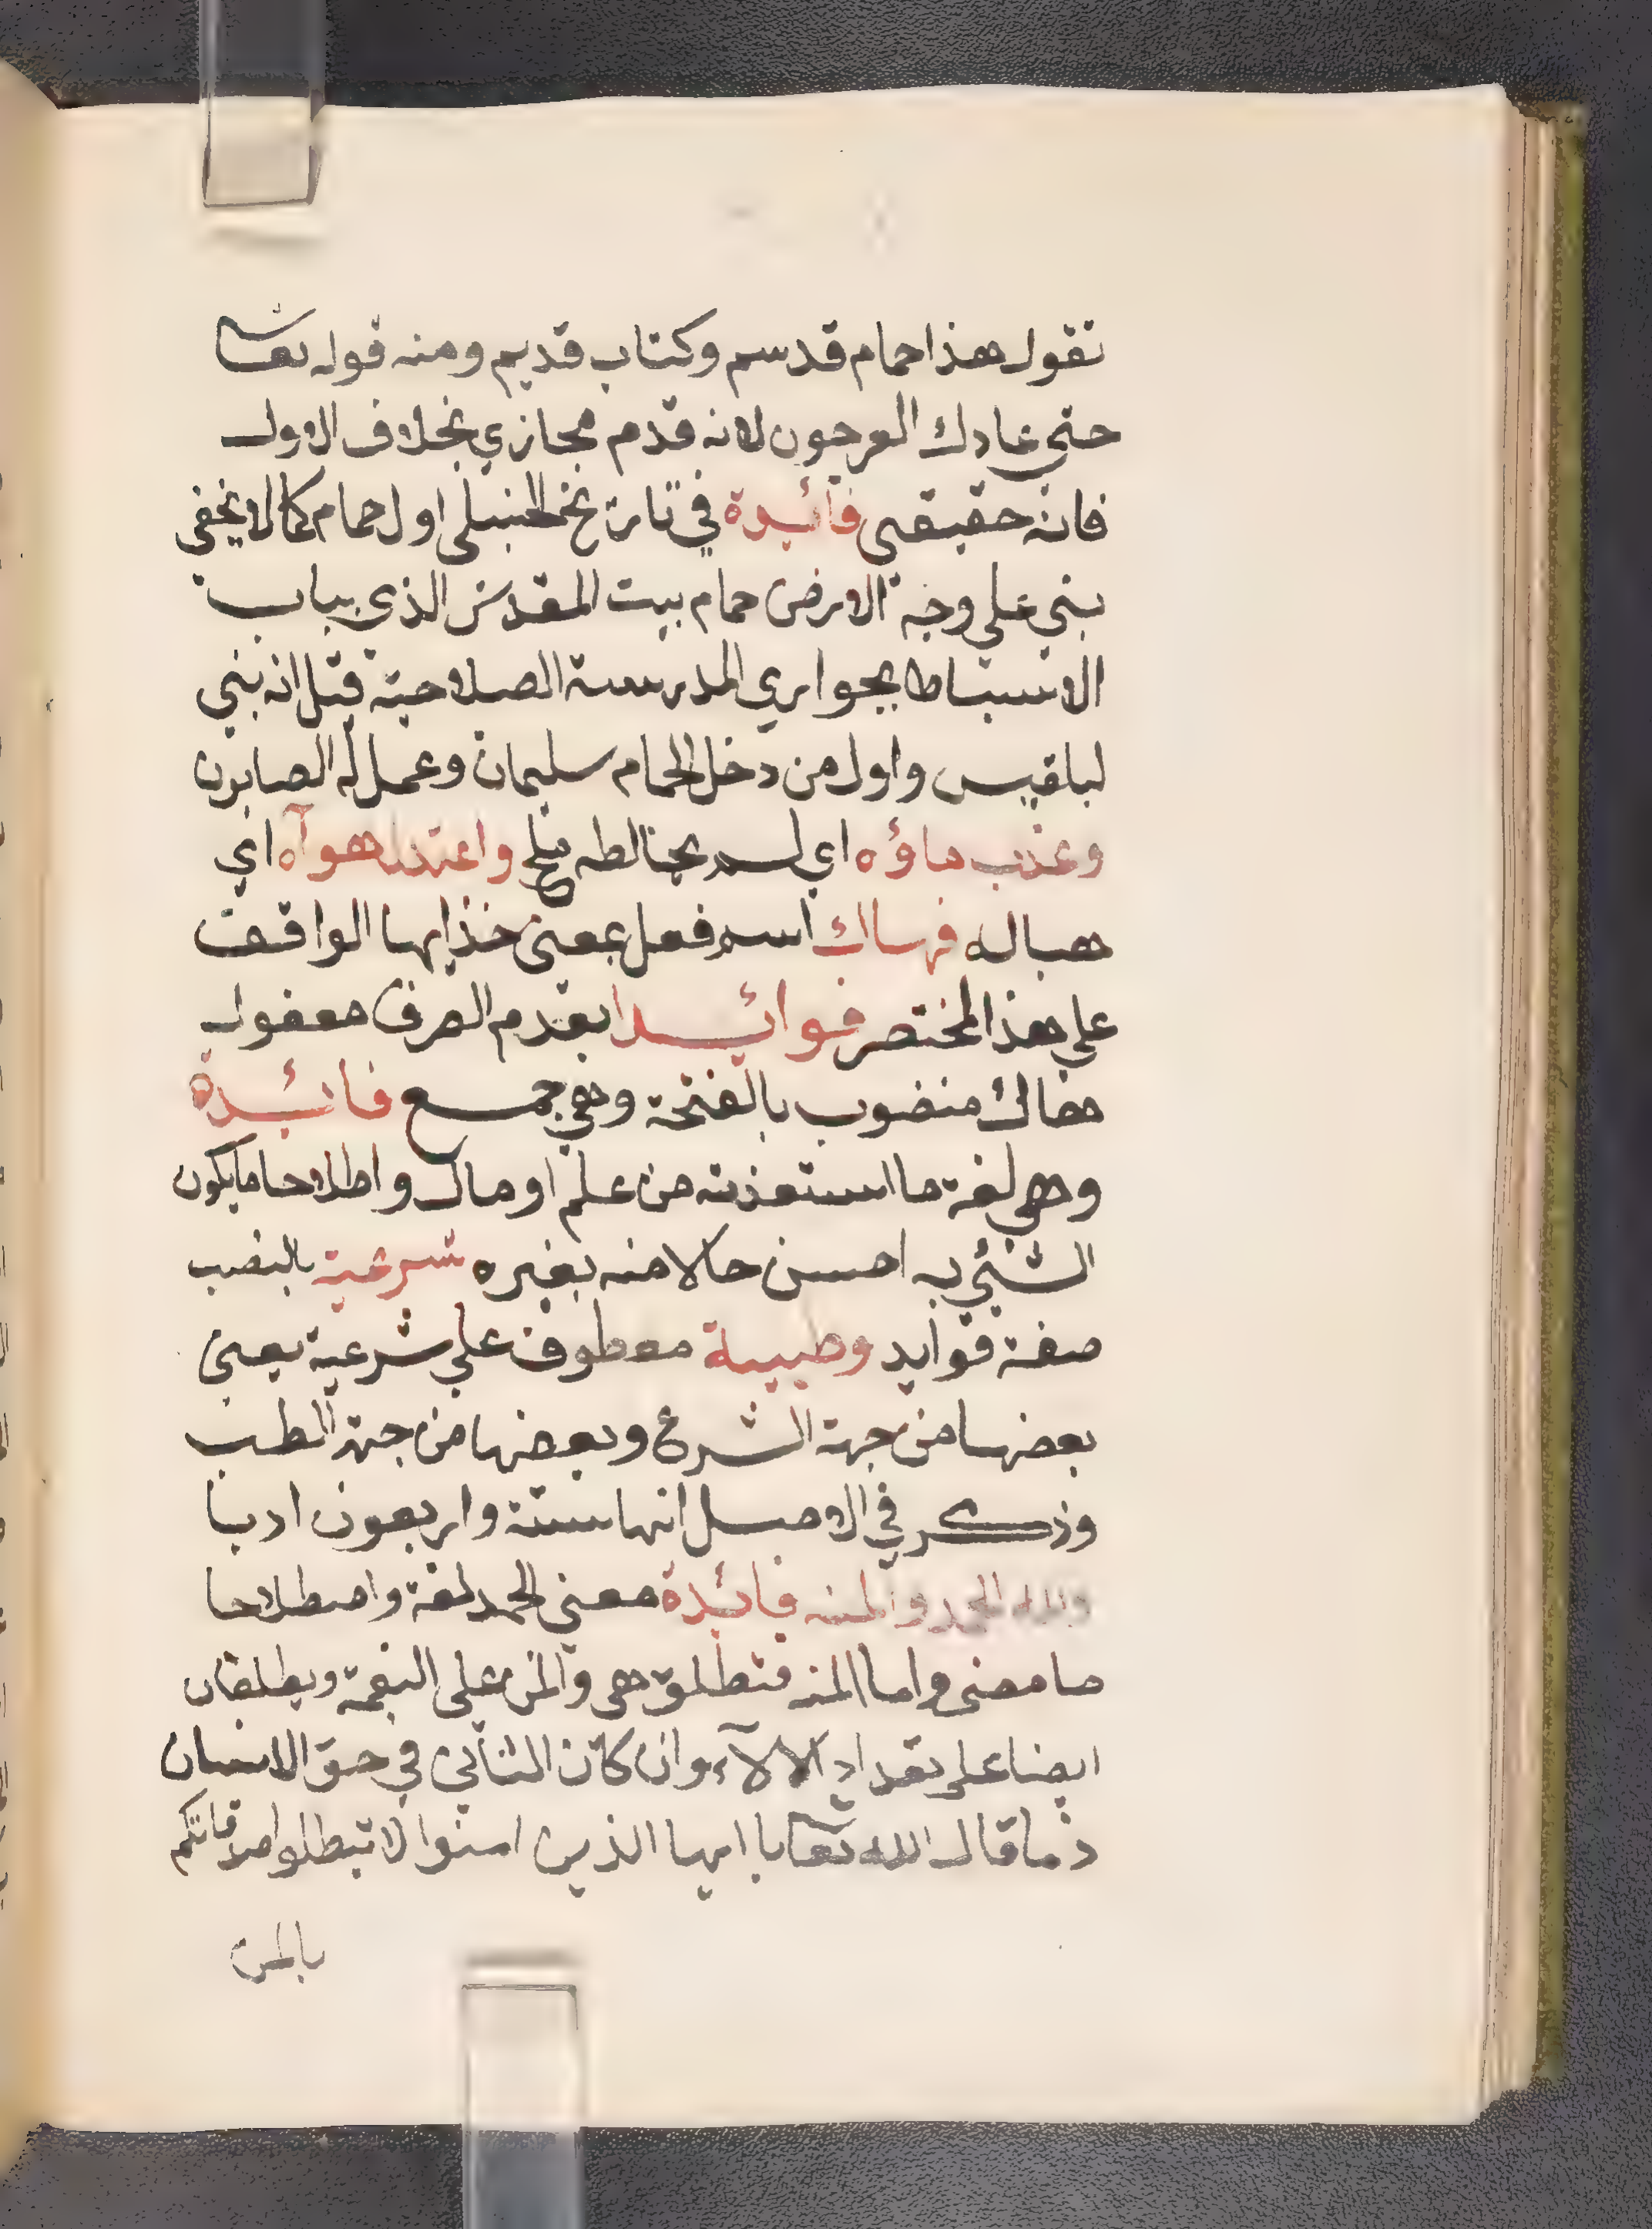 تقول هذا حمام قديم وكتاب قديم ومنه قوله تعالى
حتى عاد ك العرجون لانه قدم مجازي بخلاف الاول
فانه حقيقي فائدة في تاريخ الحنبلى اول حمام كما لا يخفى
بني على وجه الارض حمام بيت المقدس الذي بباب
الاسباط بجواري المدرسة الصلاحية قيل انه بني
لبلقيس واول من دخل الحمام سليمان وعمل له الصابون
وعذب ماؤه اي لم يخالطه ملح واعتدل هوآه اي
هباله فهاك اسم فعل بمعنى خذ ايها الواقف
على هذا المختصر فوائدا بعدم الصرف معفول
هاك منصوب بالفتحة وهي جمع فائدة
وهي لغة ما استفدته من علم او مال واطلاحا ما يكون
الشئ به احسن حالا منه بغيره شرعية بالنصب
صفة فوايد وطبيبة معطوف على شرعية يعنى
بعضها من جهة الشرع وبعضها من جهة الطب
وذكر في الاصل انها ستة واربعون ادبا
ولله الحمد والمنه فائدة معنى الحمد لغة واصطلاحا
ما معنى واما المنه فتطلق هى والمن على النعمة ويطلقان
ايضا على تعداد الالآء وان كان الثاني في حق الانسان
ذما قال الله تعا يا ايها الذين امنوا لا تبطلوا صدقاتكم
بالمن